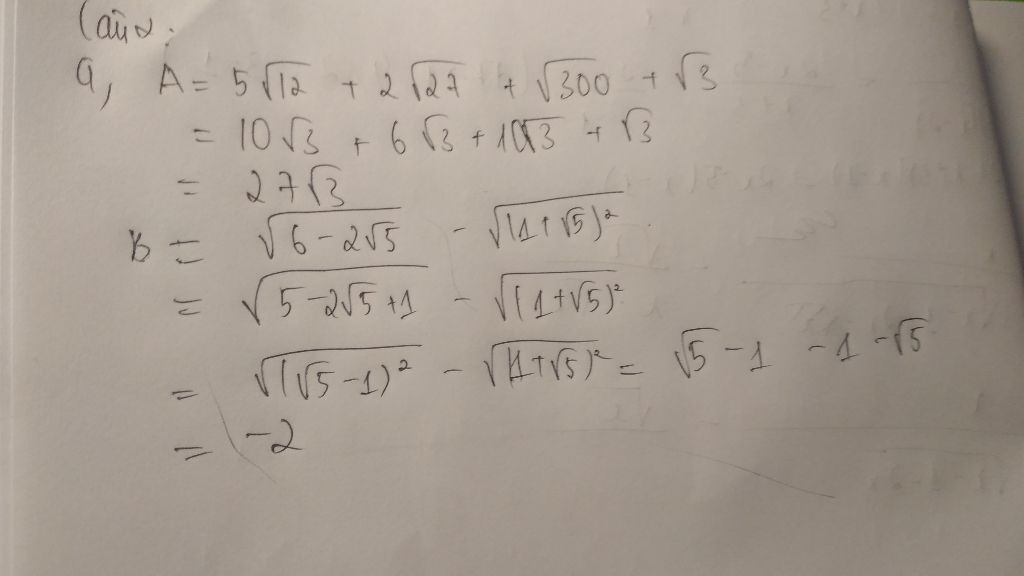 a, A = 5√12 + 2√27 + √300 + √3
= 10√3 + 6√3 + 10√3 + √3
= 27√3
B = √(6 - 2√5) - √((1 + √5)²)
= √(5 - 2√5 + 1) - √((1 + √5)²)
= √((√5 - 1)²) - √((1 + √5)²) = √5 - 1 - 1 - √5
= -2